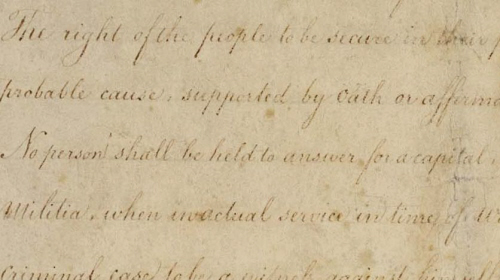 The right of the people to be secure in their
probable cause, supported by Oath or affirma
No person shall be held to answer for a capital,
Militia, when in actual service in time of W
criminal case to be a witness against himself